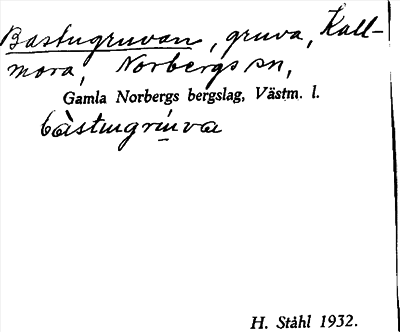 Bastugruvan, gruva, Kall-
mora, Norbergs sn,
Gamla Norbergs bergslag, Västm. l.
bàstugrụva
H. Ståhl 1932.